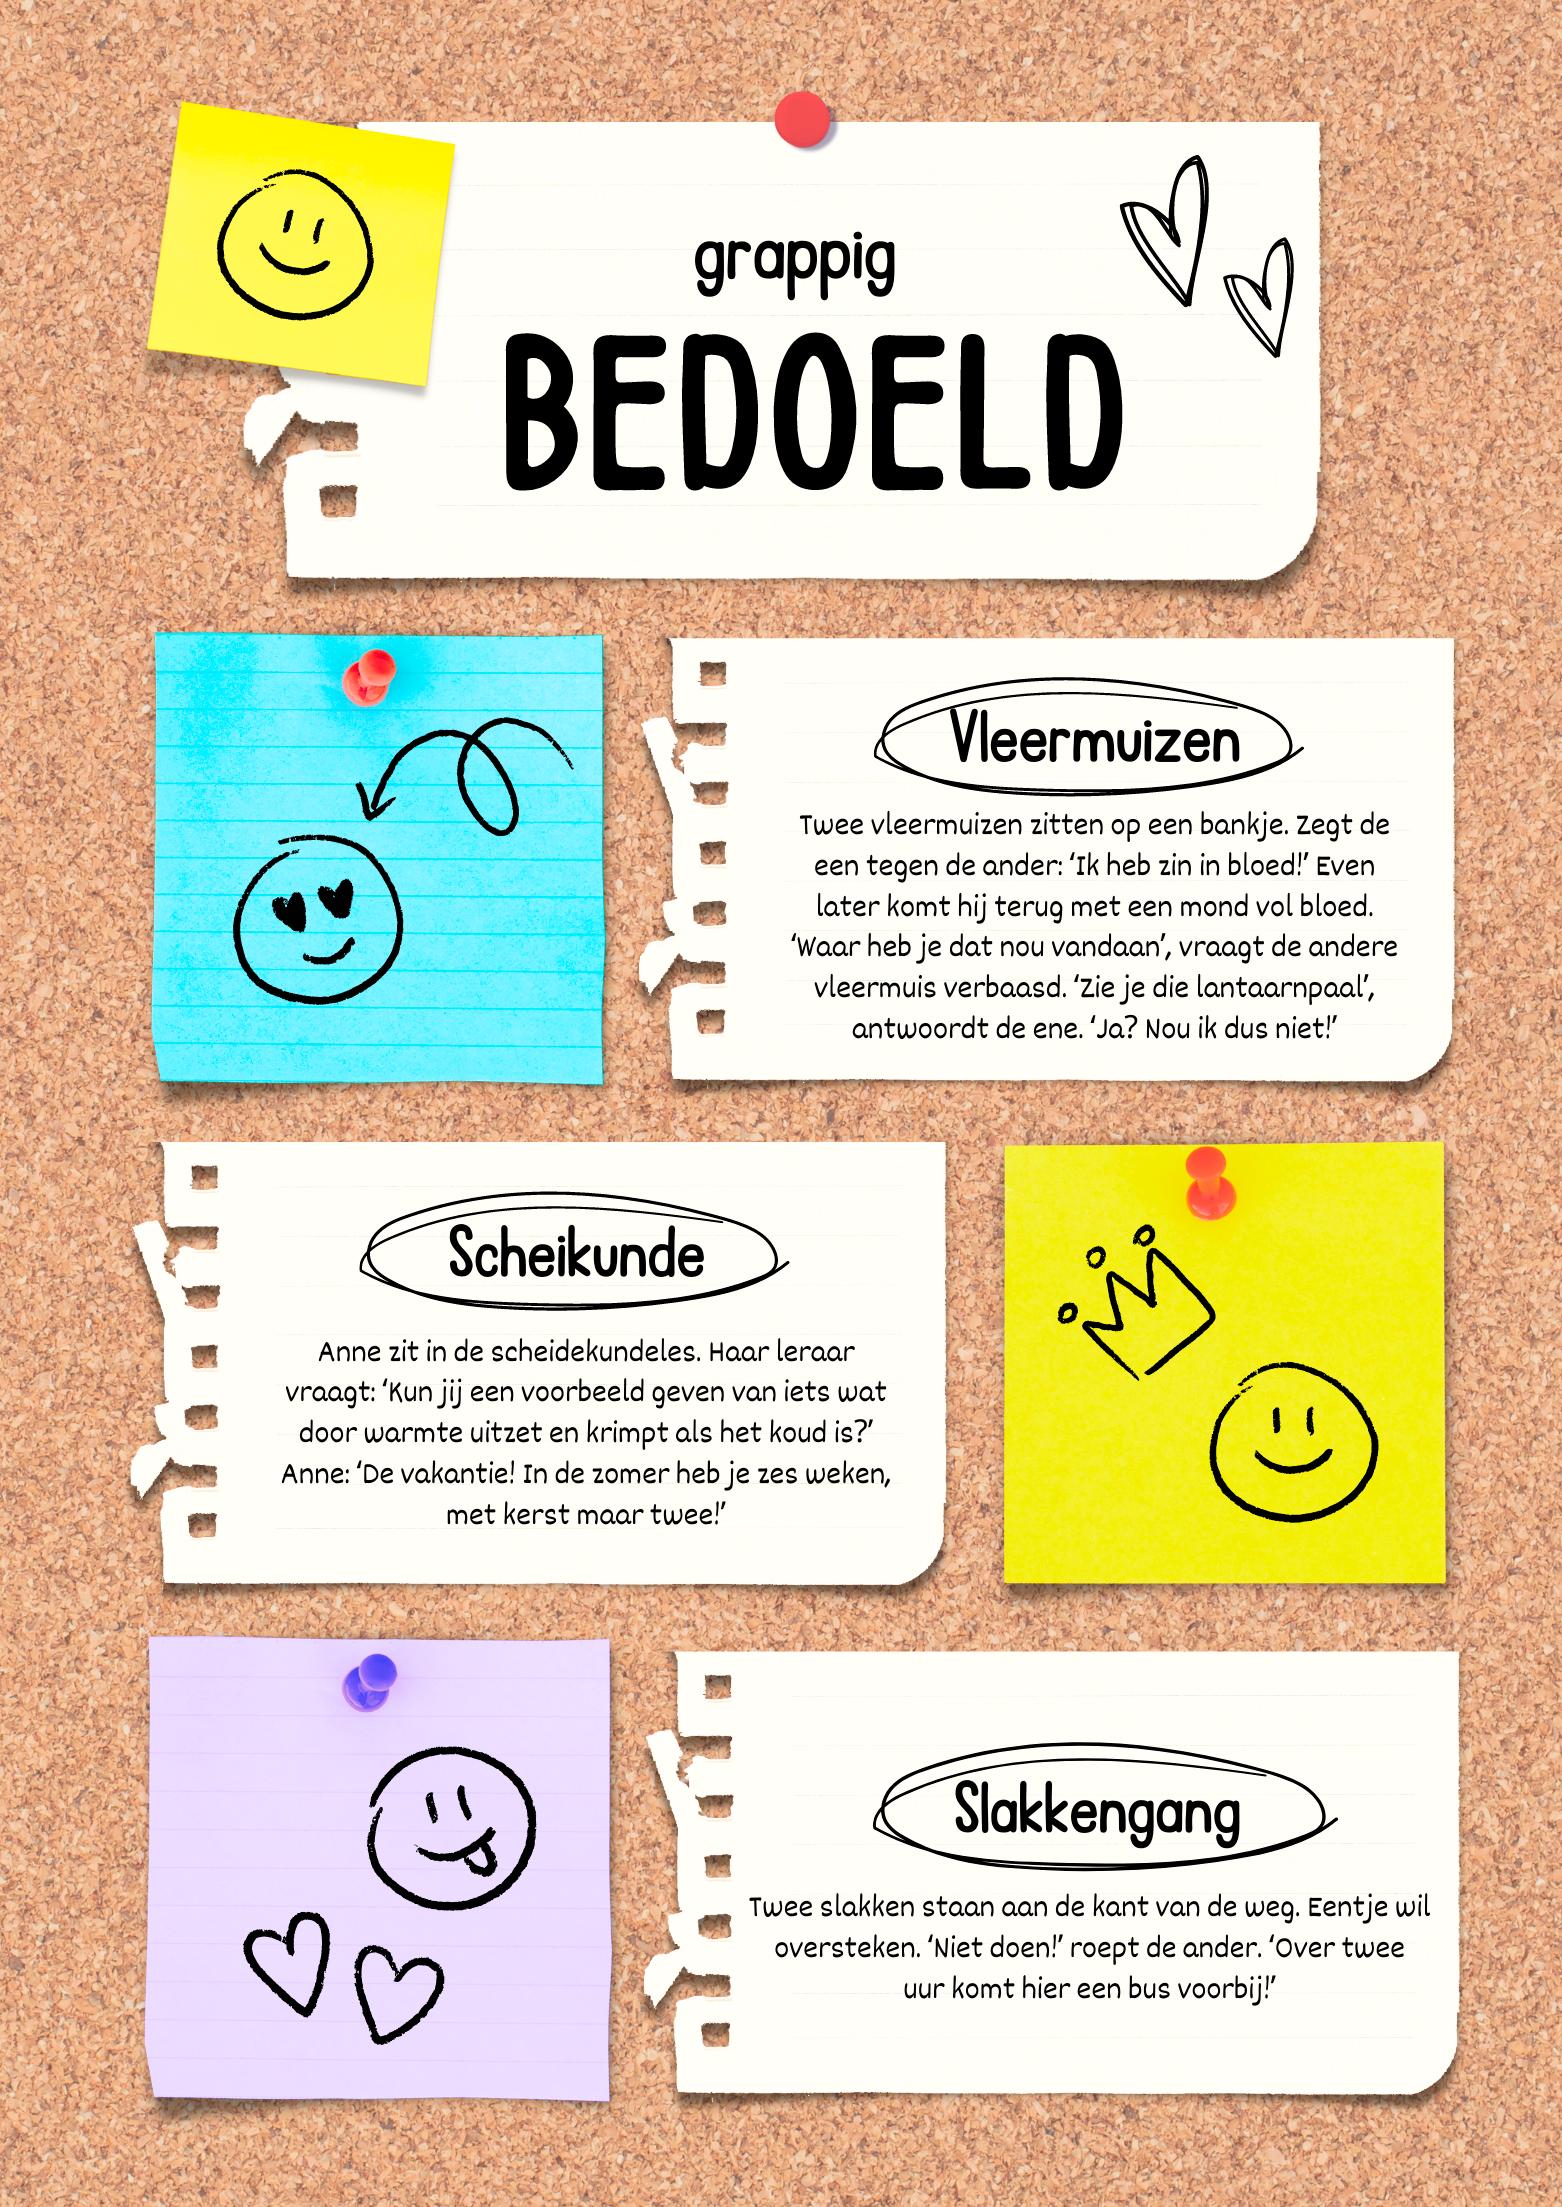 grappig
BEDOELD
Vleermuizen
Twee vleermuizen zitten op een bankje. Zegt de
een tegen de ander: ‘Ik heb zin in bloed!’ Even
later komt hij terug met een mond vol bloed.
‘Waar heb je dat nou vandaan’, vraagt de andere
vleermuis verbaasd. ‘Zie je die lantaarnpaal’,
antwoordt de ene. ‘Ja? Nou ik dus niet!’
Scheikunde
Anne zit in de scheidekundeles. Haar leraar
vraagt: ‘Kun jij een voorbeeld geven van iets wat
door warmte uitzet en krimpt als het koud is?’
Anne: ‘De vakantie! In de zomer heb je zes weken,
met kerst maar twee!’
Slakkengang
Twee slakken staan aan de kant van de weg. Eentje wil
oversteken. ‘Niet doen!’ roept de ander. ‘Over twee
uur komt hier een bus voorbij!’